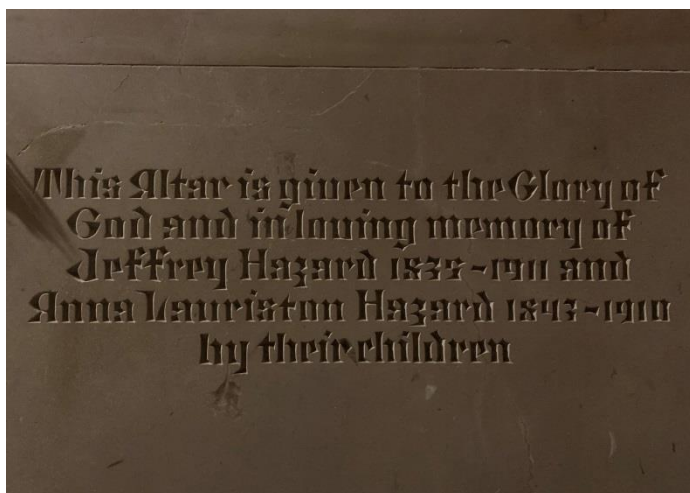 This Altar is given to the Glory of
God and in loving memory of
Jeffrey Hazard 1835-1911 and
Anna Lauriston Hazard 1843-1910
by their children